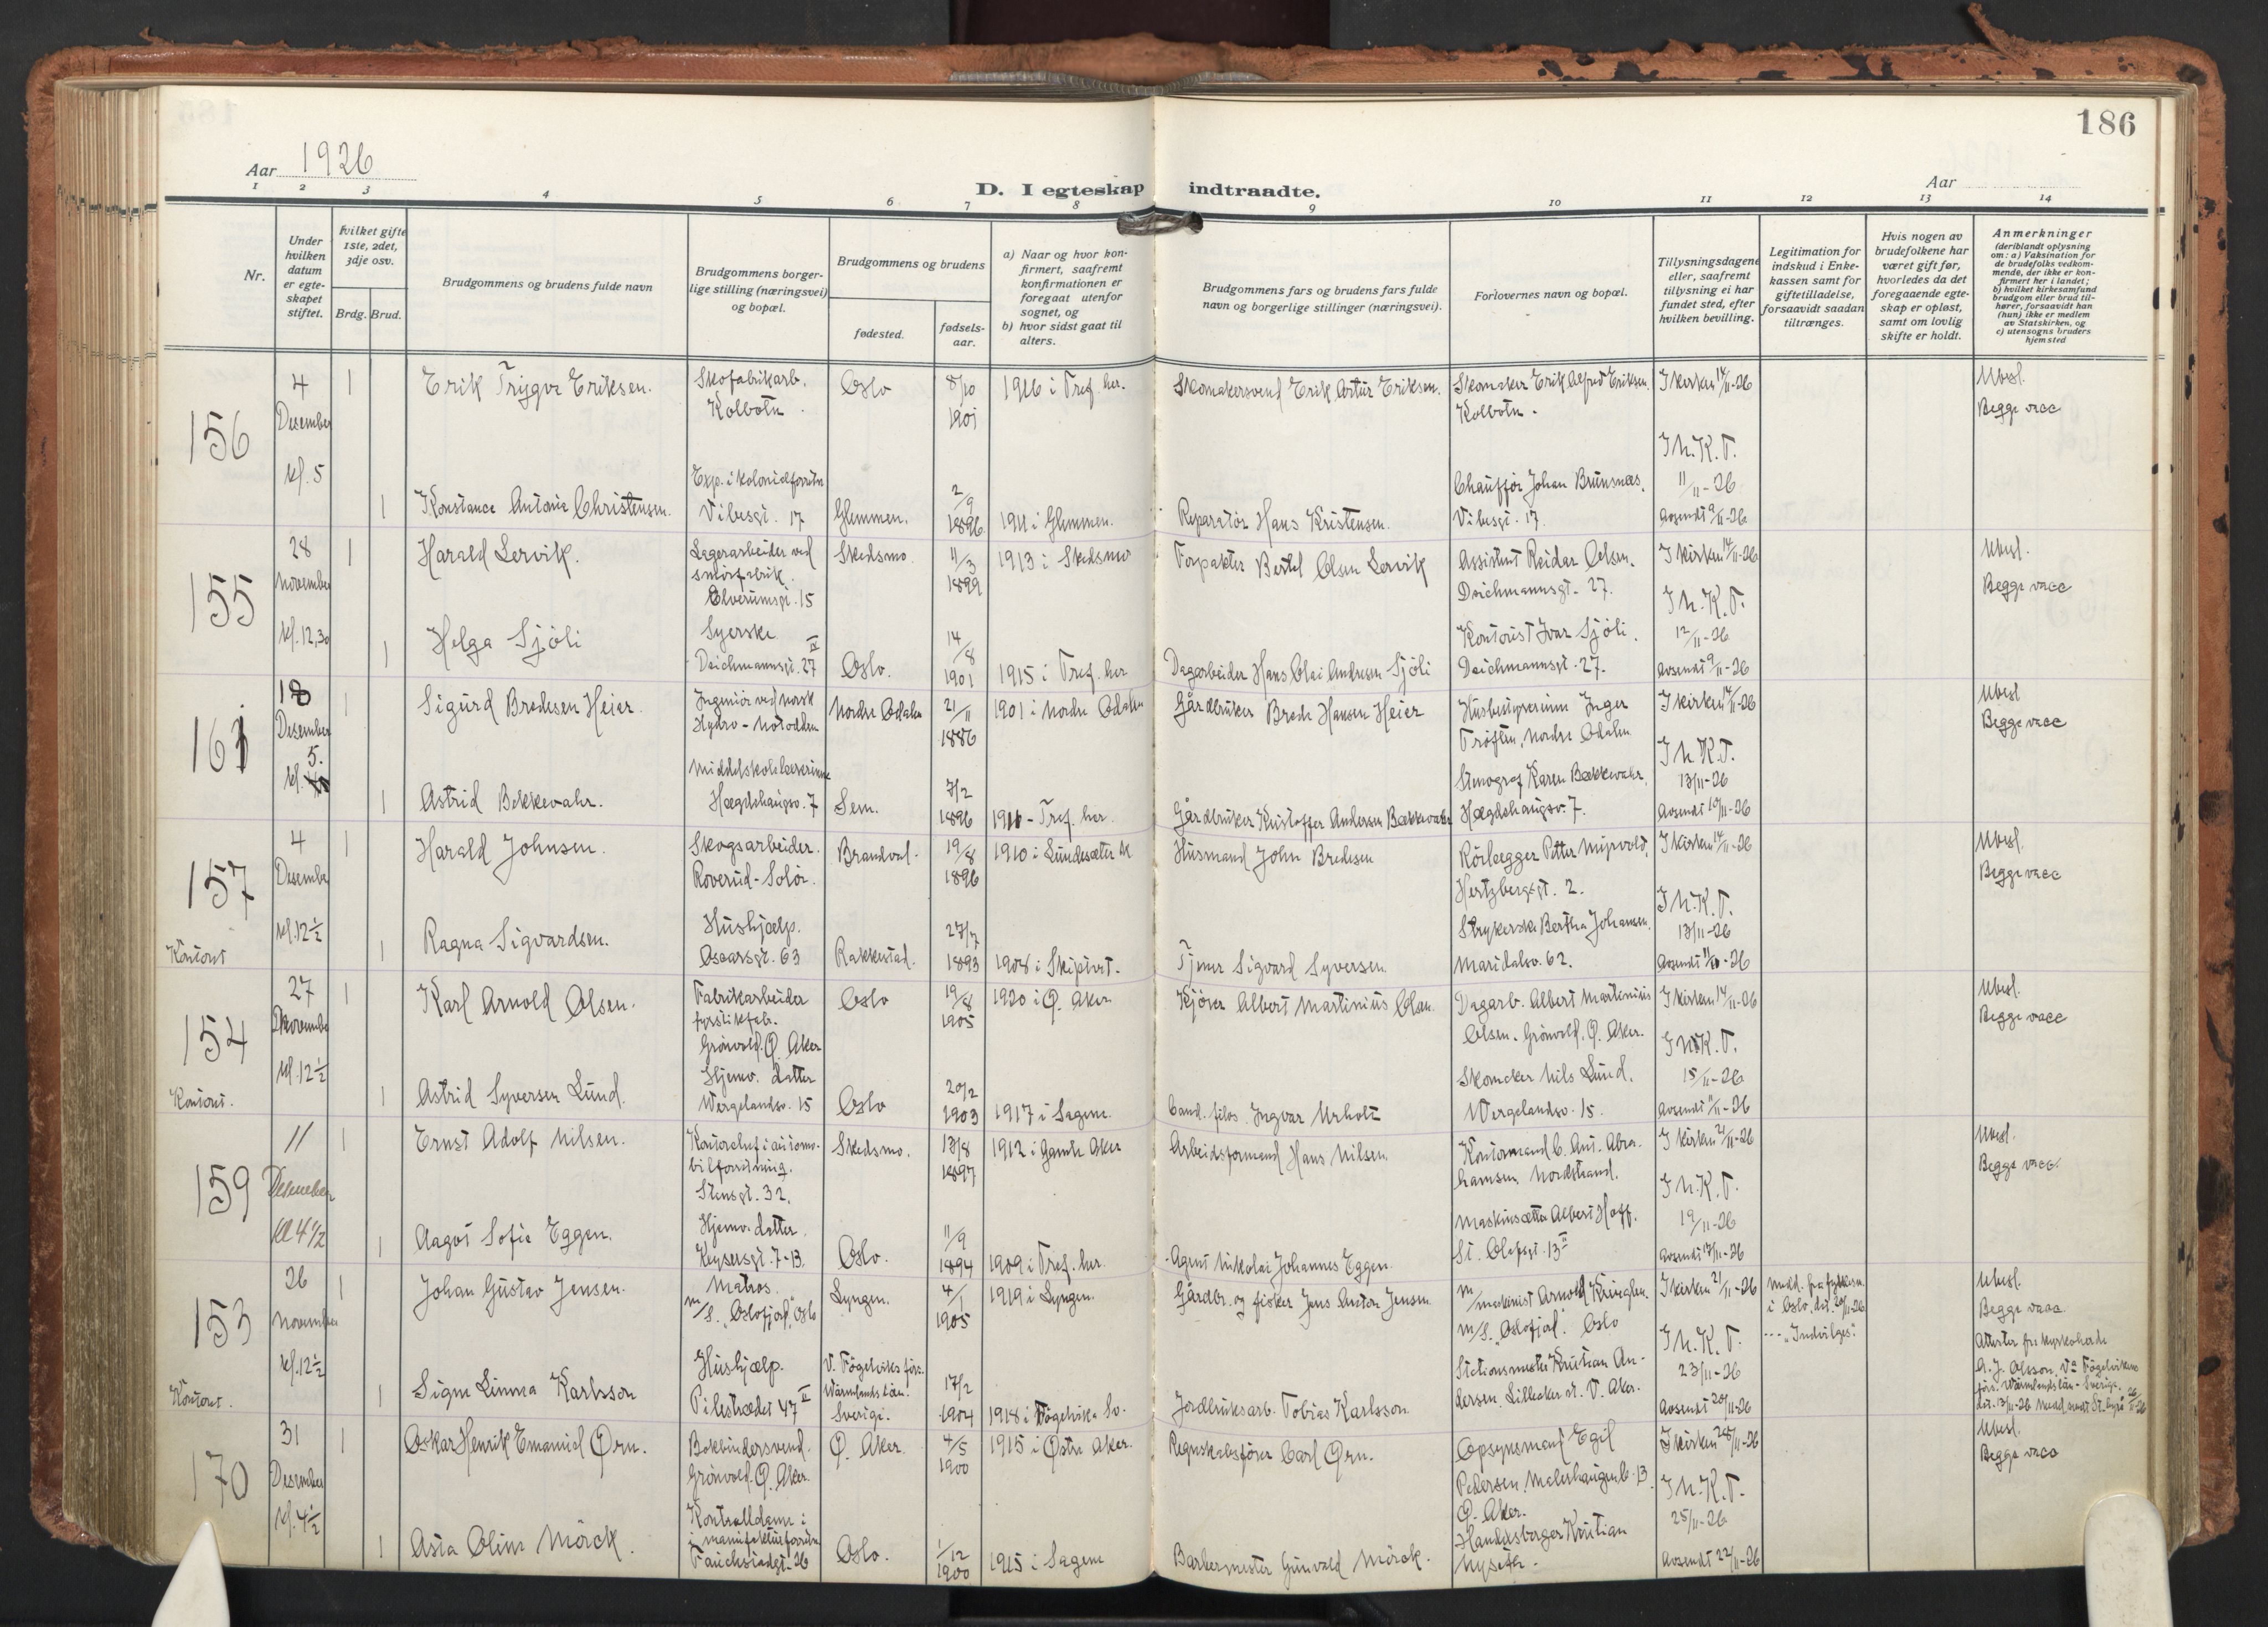 186
Aar 1926
D. I egteskap indtraadte.
Aar
1 2 3 4 5 6 7 8 9 10 11 12 13 14
Nr.
Under hvilken datum er egte-skapet stiftet.
hvilket gifte 1ste, 2det, 3dje osv.
Brdg. Brud.
Brudgommens og brudens fulde navn
Brudgommens borger-lige stilling (næringsvei) og bopæl.
Brudgommens og brudens
fødested.
fødsels-aar.
a) Naar og hvor kon-firmert, saafremt konfirmationen er foregaat utenfor sognet, og
b) hvor sidst gaat til alters.
Brudgommens fars og brudens fars fulde navn og borgerlige stillinger (næringsvei).
Forlovernes navn og bopæl.
Tillysningsdagene eller, saafremt tillysning ei har fundet sted, efter hvilken bevilling.
Legitimation for indskud i Enke-kassen samt for giftetilladelse, forsaavidt saadan tiltrænges.
Hvis nogen av brudefolkene har været gift før, hvorledes da det foregaaende egte-skap er opløst, samt om lovlig skifte er holdt.
Anmerkninger
(deriblandt oplysning om: a) Vaksination for de brudefolks vedkom-mende, der ikke er kon-firmert her i landet; b) hvilket kirkesamfund brudgom eller brud til-hører, forsaavidt han (hun) ikke er medlem av Statskirken, og c) utensogns bruders hjemsted
156 4 Desember kl. 5
1 Erik Trygve Eriksen. Skofabrikarb. Kolbotn. Oslo 8/10 1901 1916 i Tref. her. Skomakersvend Erik Artur Eriksen. Skomaker Erik Alfred Eriksen. Kolbotn. I kirken 14/11-26 Ubesl. Begge vacc
I N.K.T. 11/11-26
1 Konstance Antonie Christensen. Exp. i kolonialforretn Vibesgt. 17 Glemmen. 2/9 1896 1911 i Glemmen. Reparatør Hans Kristensen. Chauffør Johan Brunsnæs. Vibesgt. 17. Avsendt 9/11-26
155 28 November kl. 12,30
1 Harald Lervik. Lagerarbeider ved smørfabrik. Elverumsgt. 15 Skedsmo 11/3 1899 1913 i Skedsmo Forpakter Bertel Olsen Lervik Assistent Reidar Olsen. Deichmannsgt. 27. I kirken 14/11-26 Ubesl. Begge vacc
I N.K.T. 12/11-26
1 Helga Sjöli Syerske Deichmannsgt. 27 IV Oslo. 14/8 1901 1915 i Tref. her Dagarbeider Hans Olai Andresen Sjöli Kontorist Ivar Sjöli. Deichmannsgt. 27. Avsendt 9/11-26
161 18 Desember kl. 5.
1 Sigurd Bredesen Heier. Ingeniør ved Norsk Hydro - Notodden Nordre Odalen 21/11 1886 1901 i Nordre Odalen Gårdbruker Brede Hansen Heier Husbestyrerinne Inger Trøften, Nordre Odalen I kirken 14/11-26 Ubesl Begge vacc
I N.K.T. 13/11-26
1 Astrid Bekkevahr. Middelskolelærerinne Hægdehaugsv. 7 Sem. 7/2 1896 1911 - Tref. her. Gårdbruker Kristoffer Andersen Bækkevahr Stenograf Karen Bækkevahr. Hægdehaugsv. 7. Avsendt 10/11-26
157 4 Desember kl. 12½ Kontoret
1 Harald Johnsen. Skogsarbeider. Roverud - Solør. Brandval. 19/8 1896 1910 i Lundesæter k. Husmand John Bredesen Rørlægger Petter Myrvold, Hertzbergsgt. 2. I kirken 14/11-26 Ubesl. Begge vacc
I N.K.T. 13/11-26
1 Ragna Sigvardsen. Hushjælp. Oscarsgt. 63 Rakkestad. 27/7 1893 1908 i Skiptvet. Tjener Sigvard Syversen Strykerske Bertha Johansen. Maridalsv. 62. Avsendt 11/11-26
154 27 November kl. 12½ Kontoret.
1 Karl Arnold Olsen. Fabrikarbeider fyrstikfab. Grönvold. Ø. Aker Oslo 19/8 1905 1920 i Ø. Aker Kjører Albert Martinius Olsen. Dagarb. Albert Martinius Olsen. Grönvold, Ø. Aker. I kirken 14/11-26 Ubesl. Begge vacc
I N.K.T. 15/11-26
1 Astrid Syversen Lund. Hjemv. datter Wergelandsv. 15 Oslo 20/2 1903 1917 i Sagene Cand. filos. Ingvar Urholt Skomaker Nils Lund. Wergelandsv. 15. Avsendt 11/11-26
159 11 Desember kl 4½
1 Ernst Adolf Nilsen. Kontorchef i automo-bilforretning. Stensgt. 32. Skedsmo. 13/8 1897 1912 i Gamle Aker Arbeidsformand Hans Nilsen. Kontormand C. Ant. Abra-hamsen, Nordstrand. I kirken 21/11-26 Ubesl. Begge vacc.
I N.K.T. 19/11-26
1 Aagot Sofie Eggen. Hjemv. datter. Keysersgt. 7-13. Oslo. 11/9 1894 1909 i Tref. her. Agent Nikolai Johannes Eggen Maskinsetter Albert Hoff. St. Olafsgt. 13 II Avsendt 17/11-26
153 26 November kl. 12½ Kontoret.
1 Johan Gustav Jensen. Matros. M/S. "Oslofjord", Oslo Lyngen. 4/1 1905 1919 i Lyngen. Gårdbr. og fisker Jens Anton Jensen m/maskinist Arnold Kringlen. M/S. "Oslofjord". Oslo I kirken 21/11-26 Medd. fra fylkesm. i Oslo, dat. 20/11-26 --- "Indvilges". Ubesl. Begge vacc.
I N.K.T. 23/11-26
1 Signe Linnea Karlsson Hushjælp. Pilestrædet 47 II V. Fågelviks förs. Wärmlands län. Sverige. 17/2 1904 1918 i Fågelvik Sv. Jordbruksarb. Tobias Karlsson Stationsmester Kristian An-dersen. Lilleaker st. V. Aker. Avsendt 20/11-26 Attester fra kyrkoherde A. J. Olsson, V:a Fågelviks förs. Wärmlands län - Sverige. dat. 13/11-26
170 31 Desember kl. 4½
1 Oskar Henrik Emanuel Ørn. Bokbindersvend. Grönvold. Ø. Aker. Ø. Aker. 4/5 1900 1915 i Østre Aker. Regnskabsfører Carl Ørn. Opsynsmand Egil Pedersen. Malerhaugen b. 13. Ø. Aker. I kirken 28/11-26 Ubesl. Begge vacc
I N.K.T. 25/11-26
1 Asta Oline Mörck. Kontrolldame i manufakturforretn Fauchaldsgt. 26 Oslo. 1/12 1900 1915 i Sagene Barbermester Gunvald Mörck. Handelsborger Kristian Nyseth. Avsendt 22/11-26